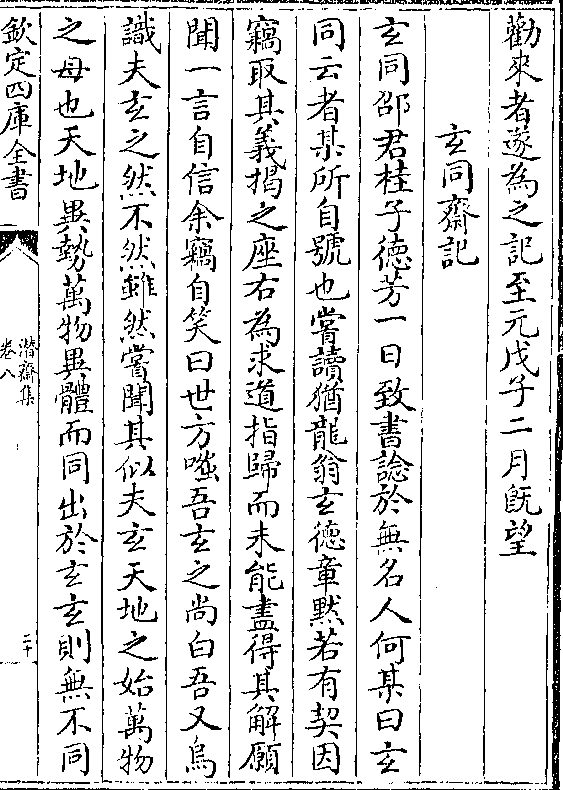 勸來者遂為之記至元戊子二月既望
玄同齋記
玄同邵君桂子徳芳一日致書諗於無名人何某曰玄
同云者某所自號也嘗讀猶龍翁玄徳章黙若有契因
竊取其義揭之座右為求道指歸而未能盡得其解願
聞一言自信余竊自笑曰世方嗤吾玄之尚白吾又烏
識夫玄之然不然雖然嘗聞其似夫玄天地之始萬物
之母也天地異勢萬物異體而同出於玄玄則無不同
欽定四庫全書
潛齋集
卷八
二十